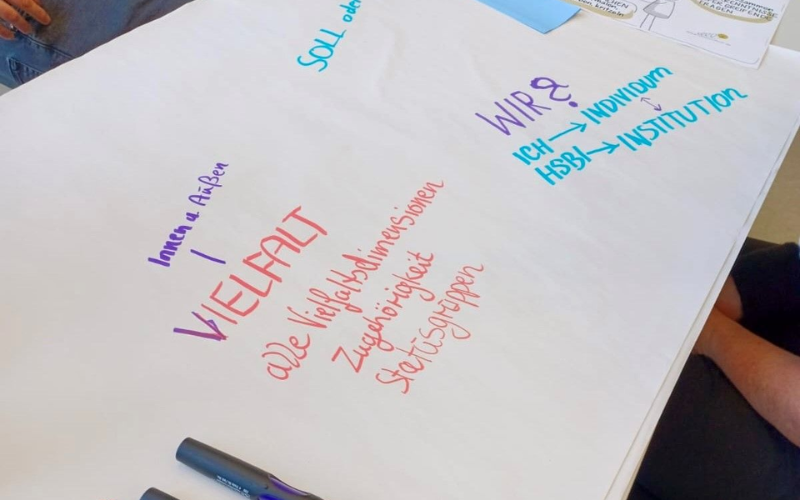 SOLL oder
WIR?
ICH → INDIVIDUUM
HSBI → INSTITUTION
Innen u Außen
VIELFALT
alle Vielfaltsdimensionen
Zugehörigkeit
Statusgruppen